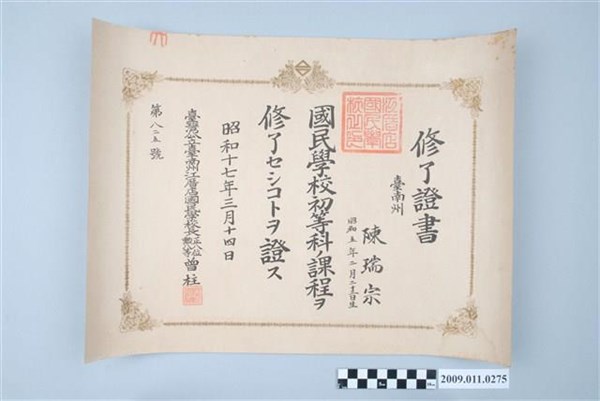 修了證書
臺南州
陳瑞宗
昭和五年二月二十三日生
國民學校初等科ノ課程ヲ
修了セシコトヲ證ス
昭和十七年三月十四日
臺南州江厝店國民學校長正八位勲八等曾柱
第八二五號
2009.011.0275